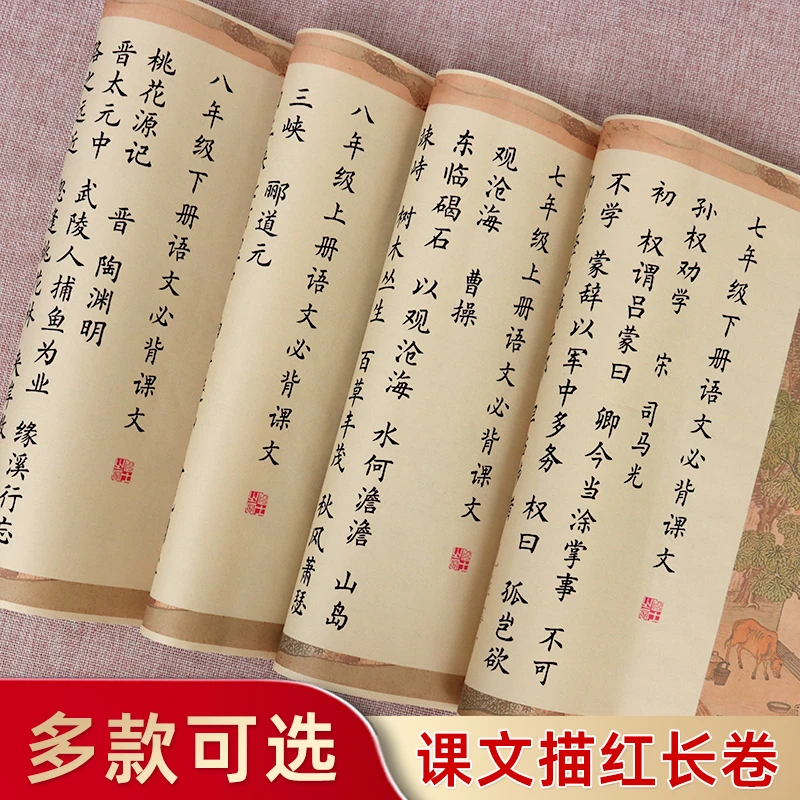 七年级下册语文必背课文
孙权劝学 宋 司马光
初 权谓吕蒙曰 卿今当涂掌事 不可
不学 蒙辞以军中多务 权曰 孤岂欲
七年级上册语文必背课文
观沧海 曹操
东临碣石 以观沧海 水何澹澹 山岛
竦峙 树木丛生 百草丰茂 秋风萧瑟
八年级上册语文必背课文
三峡 郦道元
八年级下册语文必背课文
桃花源记 晋 陶渊明
晋太元中 武陵人捕鱼为业 缘溪行忘
路之远近 忽逢桃花林
多款可选
课文描红长卷